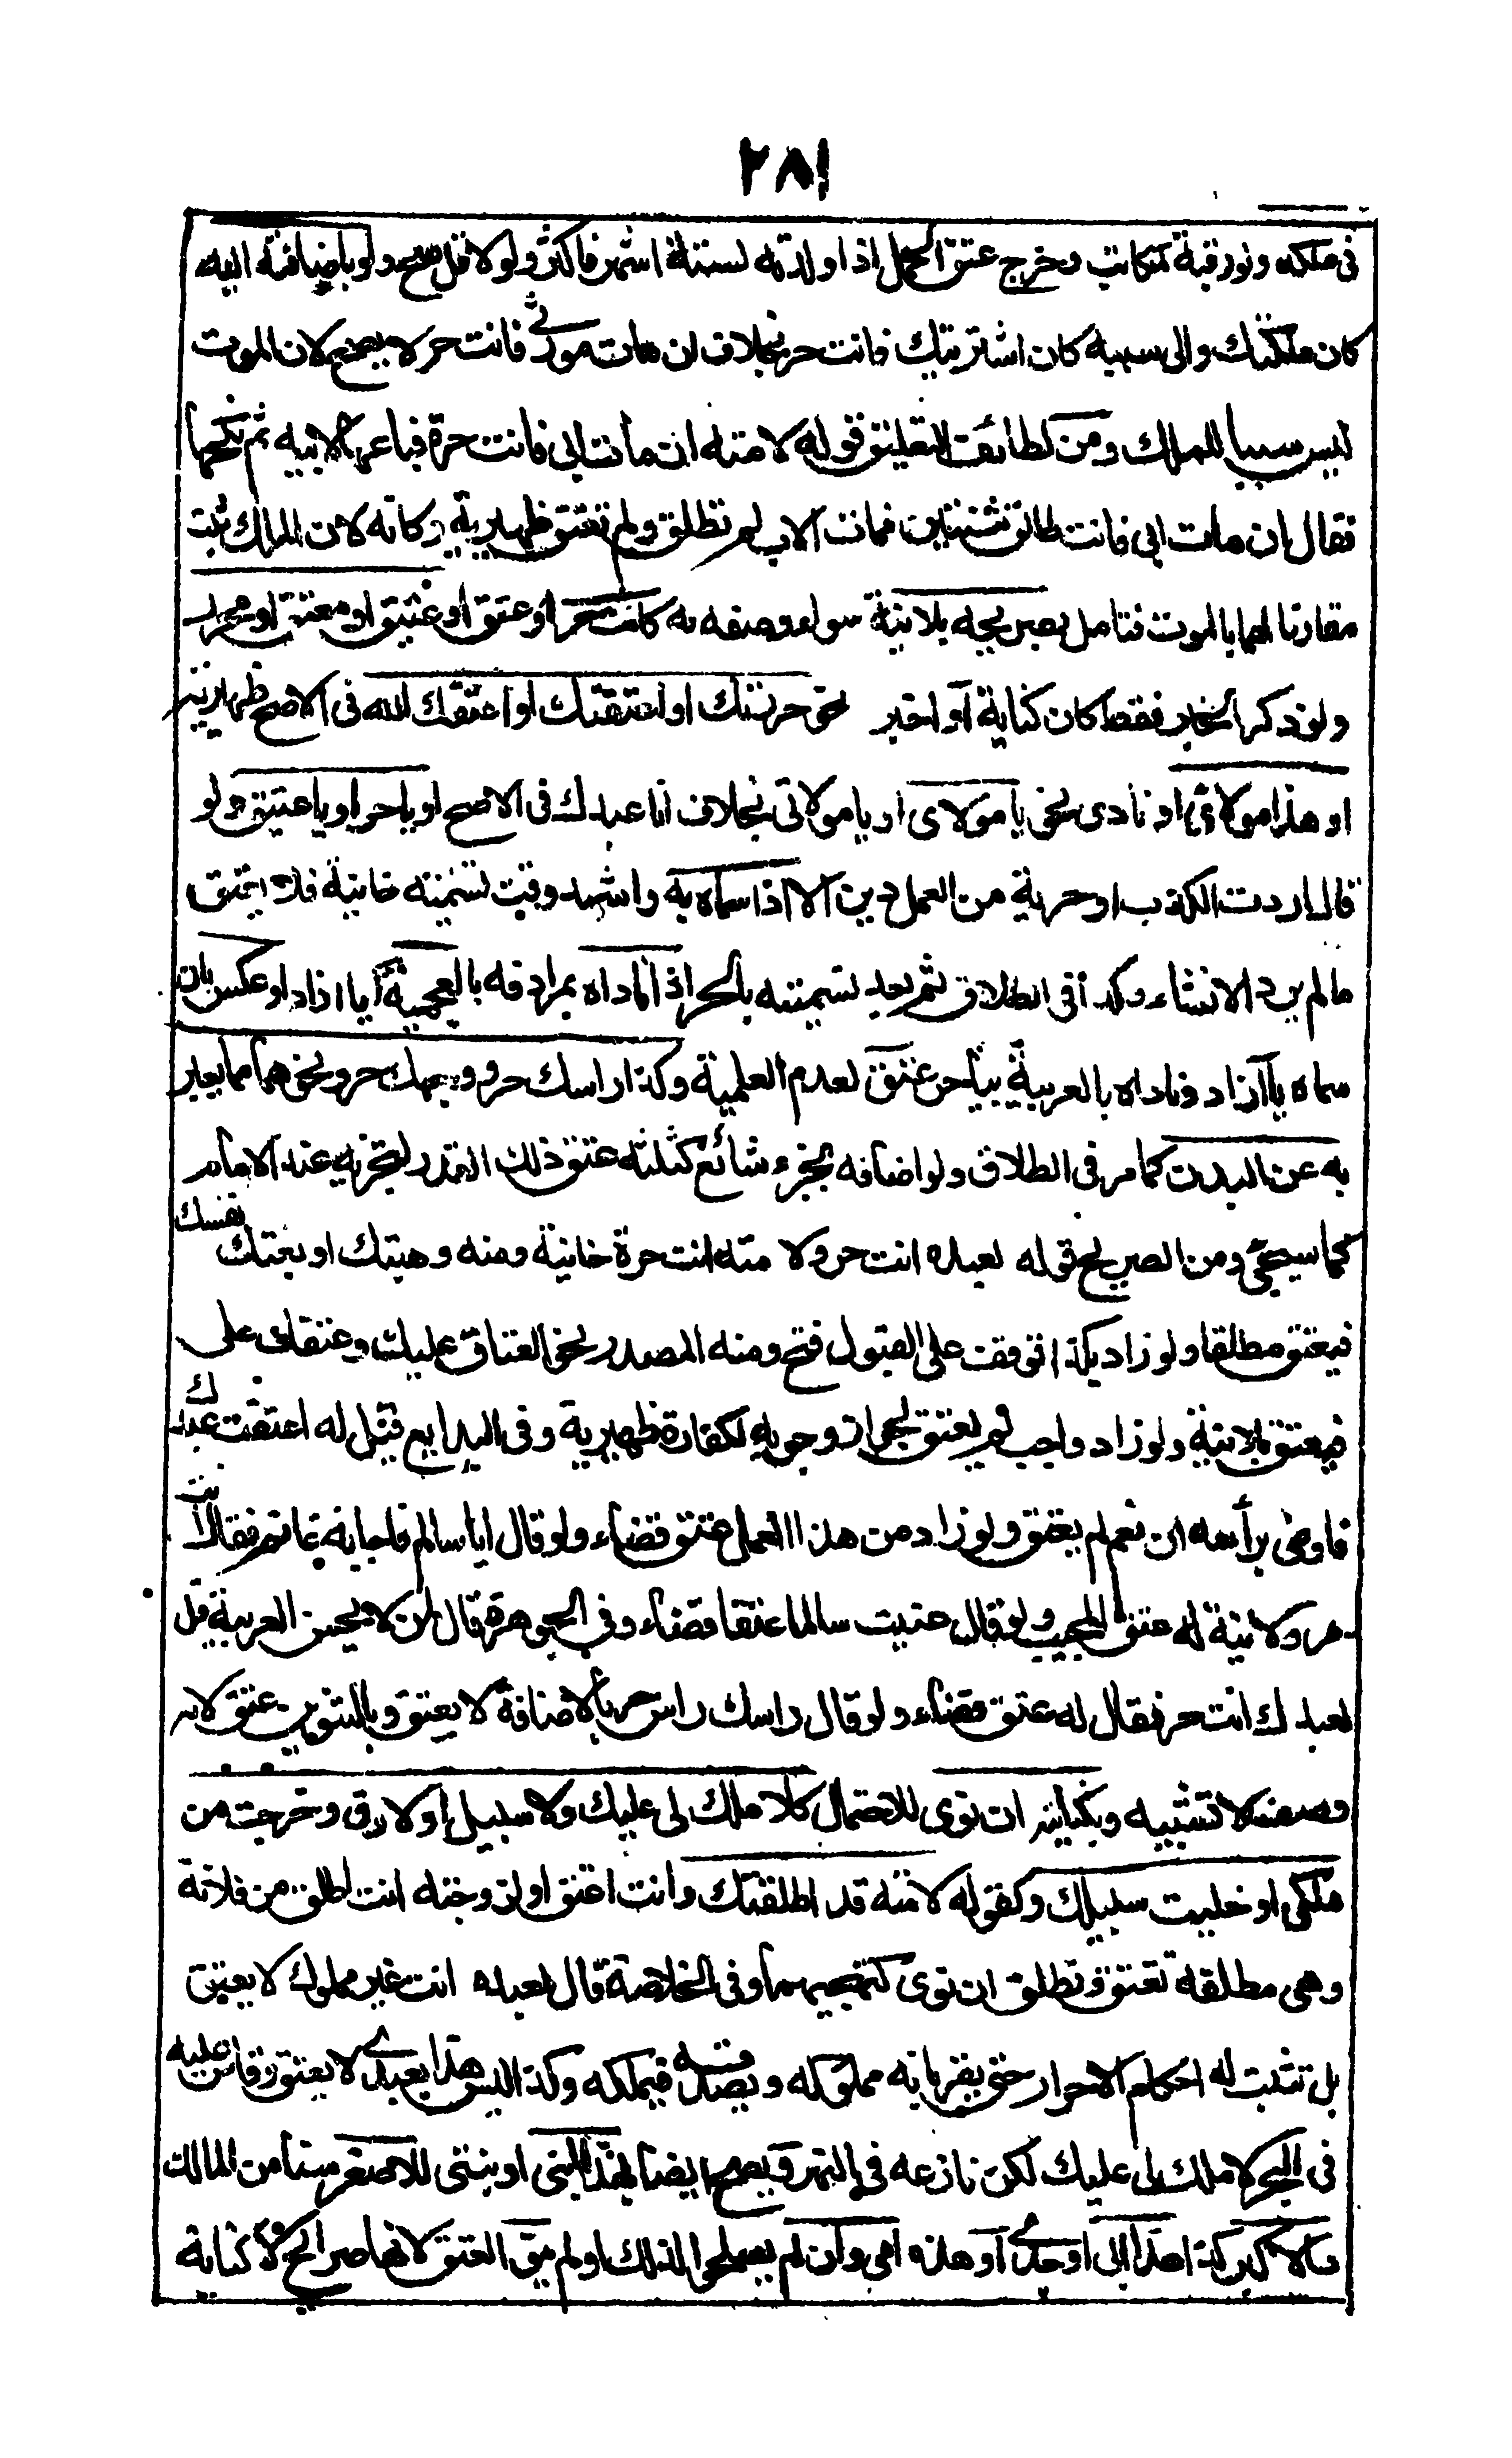 ٢٨١
فى ملكه ولو رقبة كمكاتب وخرج عتق الحمل اذا ولدته لستة اشهر فاكثر ولو لاقل صح ولو باضافته اليه
كان ملكتك والى سببه كان اشتريتك فانت حر بخلاف ان مات مورثى فانت حر لا يصح لان الموت
ليس سببا للملك ومن لطائف التعليق قوله لامته ان مات ابى فانت حرة فباعها لابيه ثم نكحها
فقال ان مات ابى فانت طالق ثنتين فمات الاب لم تطلق ولم تعتق ظهيرية وكانه لان الملك ثبت
مقارنا لهما بالموت فتامل بصريحه بلا نية سواء وصفه به كانت حر او عتق او عتيق او معتق او محرر
ولو ذكر الخبر فقط كان كناية او اخبر نحو حررتك او اعتقتك او اعتقك الله فى الاصح ظهيرية
او هذا مولاى او نادى نحو يا مولاى او يا مولاتى بخلاف انا عبدك فى الاصح او يا حر او يا عتيق ولو
قال اردت الكذب او حرية من العمل دين الا اذا سماه به واشهد وقت تسميته خانية فلا يعتق
ما لم يرد الانشاء وكذا فى الطلاق ثم بعد تسميته بالحر اذا ناداه بمرادفه بالعجمية يا ازاد او عكس بان
سماه بآزاد وناداه بالعربية بيا حر عتق لعدم العلمية وكذا راسك حر ووجهك حر ونحوهما مما يعبر
به عن البدن كما مر فى الطلاق ولو اضافه بجزء شائع كثلثه عتق ذلك القدر لتجزيه عند الامام
كما سيجئ ومن الصريح قوله لعبده انت حر ولامته انت حرة خانية ومنه وهبتك او بعتك نفسك
فيعتق مطلقا ولو زاد بكذا توقف على القبول فتح ومنه المصدر نحو العتاق عليك وعتقك على
فيعتق بلا نية ولو زاد واجب لم يعتق لجواز وجوبه لكفارة ظهيرية وفى البدايع قيل له اعتقت عبدك
فاومى براسه ان نعم لم يعتق ولو زاد من هذا العمل عتق قضاء ولو قال يا سالم فاجابه غانم فقال انت
حر ولا نية له عتق المجيب ولو قال عنيت سالما عتقا قضاء وفى الجوهرة قال لمن لا يحسن العربية قل
لعبدك انت حر فقال له عتق قضاء ولو قال راسك راس حر بالاضافة لا يعتق وبالتنوين عتق لانه
وصف لا تشبيه وبكنايته ان نوى للاحتمال كلا ملك لى عليك ولا سبيل او لا رق وخرجت من
ملكى او خليت سبيلك وكقوله لامته قد اطلقتك وانت اعتق او لزوجته انت اطلق من فلانة
وهى مطلقة تعتق وتطلق ان نوى كتهجيهما وفى الخلاصة قال لعبده انت غير مملوك لا يعتق
بل تثبت له احكام الاحرار حتى يقر بانه مملوكه ويصدقه فيملكه وكذا ليس هذا بعبدى لا يعتق وقاس عليه
فى البحر لا ملك لى عليك لكن نازعه فى النهر ويصح ايضا بهذا ابنى او بنتى للاصغر سنا من المالك
والاكبر كذا هذا ابى او جدى او هذه امى وان لم يصلحوا لذلك او لم ينو العتق لانها صرائح لا كناية